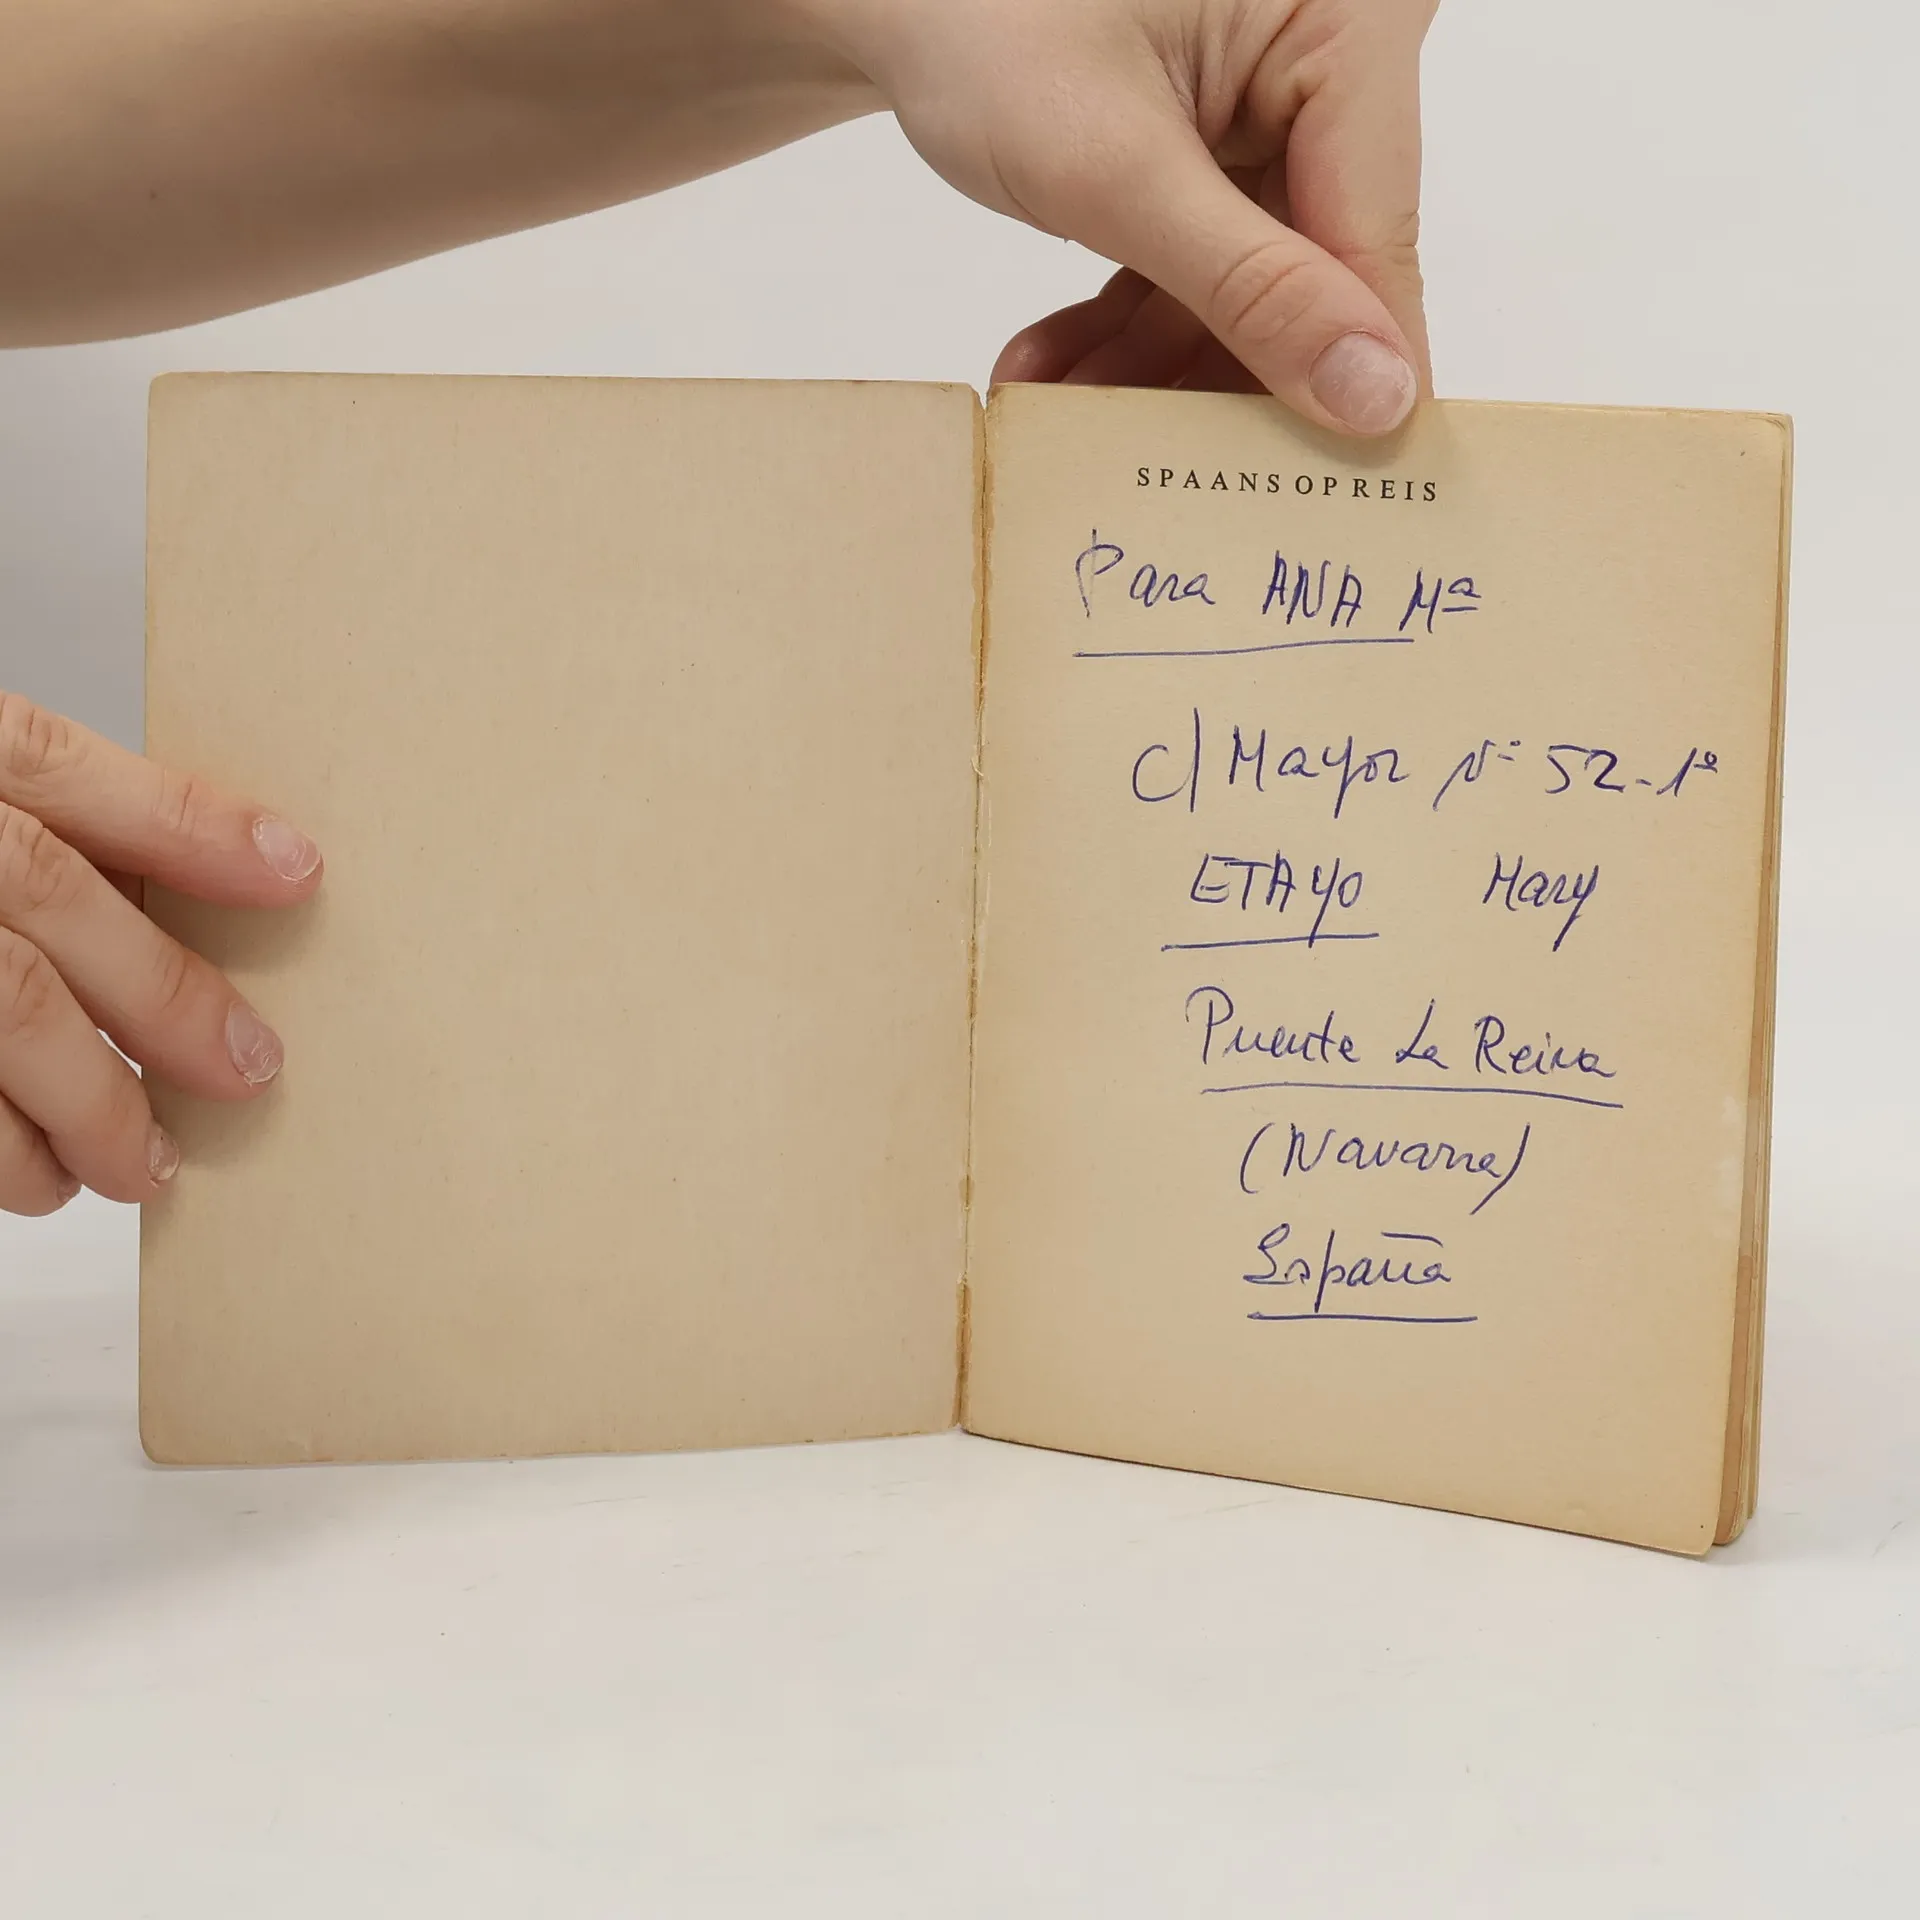 SPAANS OP REIS
Para ANA Mª
C/ Mayor Nº 52-1º
ETAYO Mary
Puente La Reina
(Navarra)
España